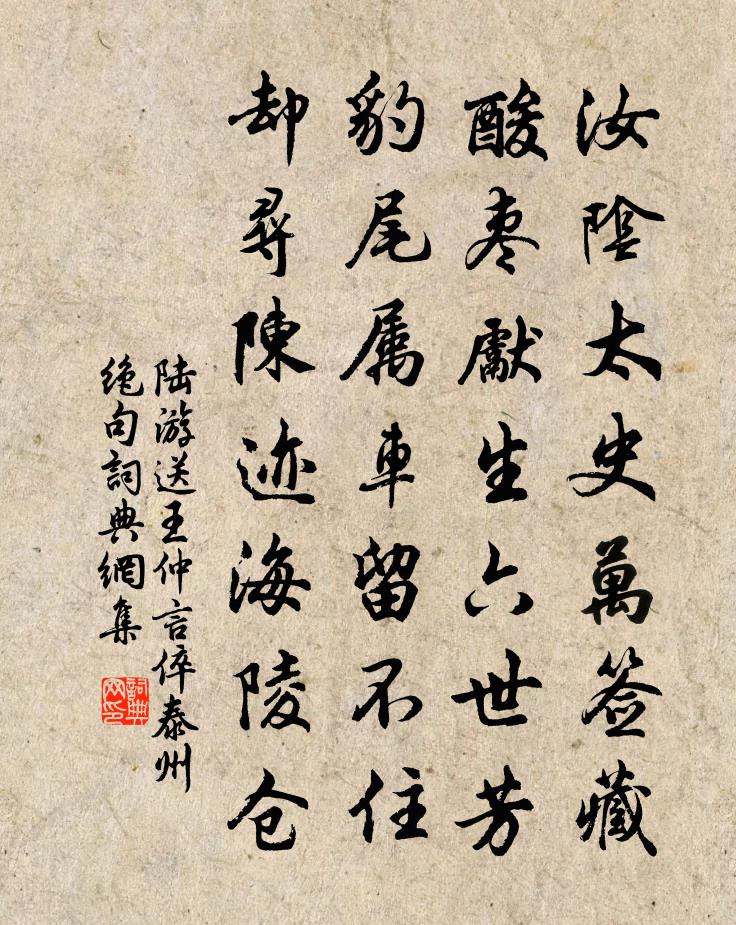 汝陰太史萬签藏
酸枣獻生六世芳
豹尾属車留不住
却尋陳迹海陵仓
陆游送王仲言倅泰州
絶句詞典網集
詞典
网印